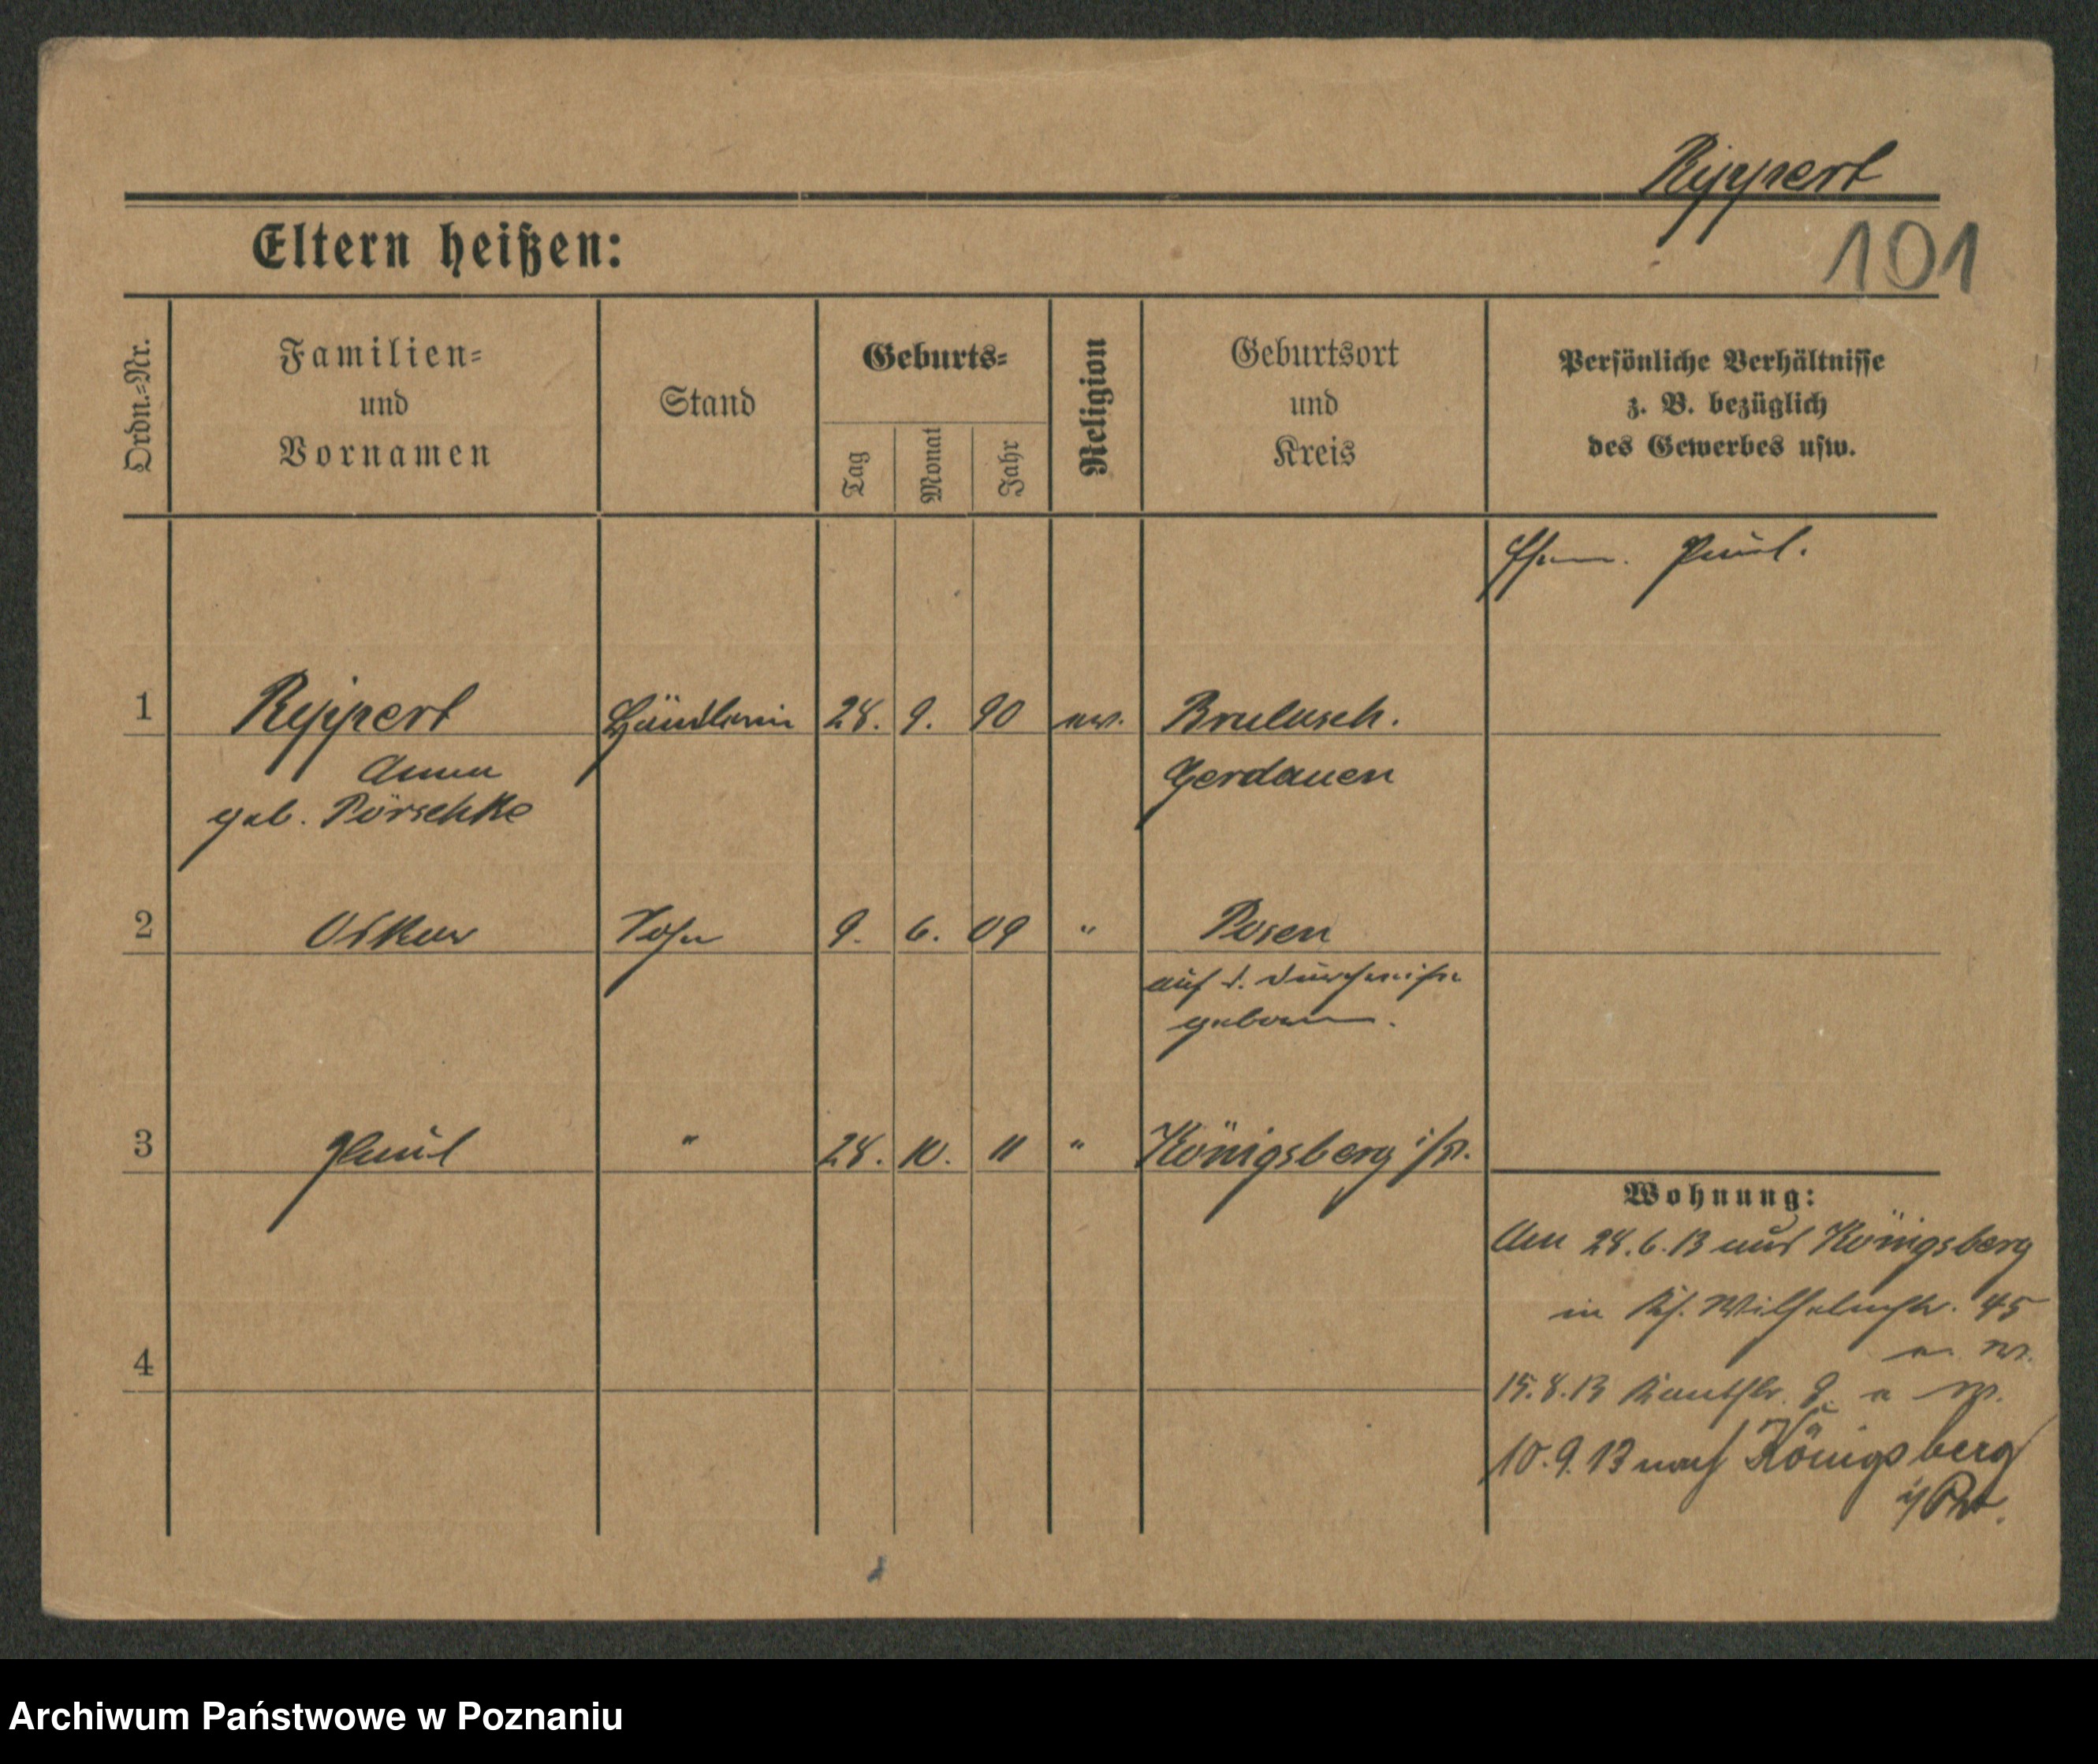 Rippert
101
Eltern heißen:
Ordn.=Nr.
Familien=
und
Vornamen
Stand
Geburts=
Tag
Monat
Jahr
Religion
Geburtsort
und
Kreis
Persönliche Verhältnisse
z. B. bezüglich
des Gewerbes usw.
Ehem. Paul.
1 Rippert Händlerin 28. 9. 90 ev.
Anna Gerdauen
geb. Pörschke
2 Oskar Sohn 9. 6. 09 " Posen
auf d. Durchreise
geboren.
3 Paul " 28. 10. 11 " Königsberg i/Pr.
Wohnung:
Am 28.6.13 aus Königsberg
in Wilhelmstr. 45
4
15.8.13 Kantstr. 9.
10.9.13 nach Königsberg
i/Pr.
Archiwum Państwowe w Poznaniu